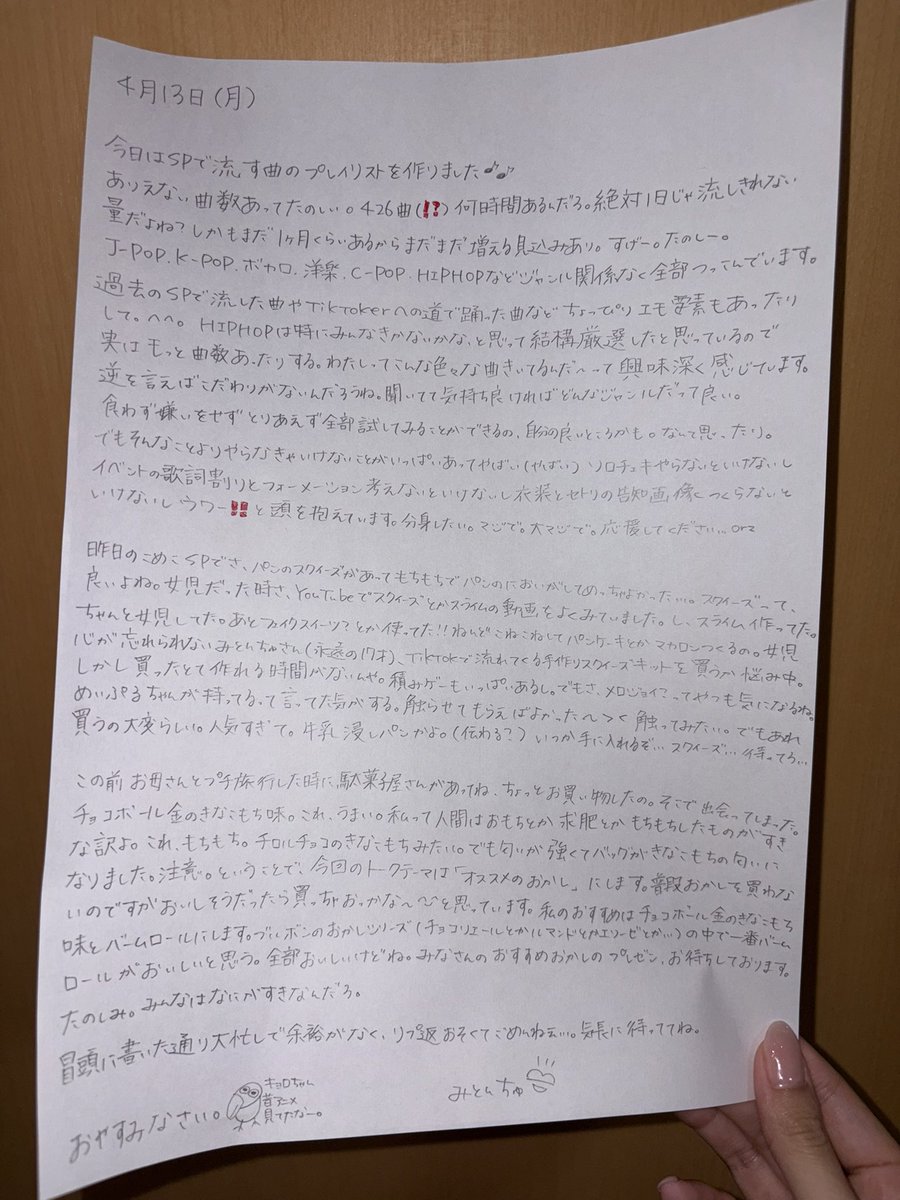 4月13日(月)
今日はSPで流す曲のプレイリストを作りました♪♪
ありえない曲数あってたのしい。426曲(⁉)何時間あるんだろ。絶対1日じゃ流しきれない
量だよね?しかもまだ1ヶ月くらいあるからまだまだ増える見込みあり。すげー。たのしー。
J-POP.K-POP.ボカロ.洋楽.C-POP.HIPHOPなどジャンル関係なく全部つっこんでいます。
過去のSPで流した曲やTikTokerへの道で踊った曲などちょっぴりエモ要素もあったり
して。へへ。HIPHOPは特にみんなきかないかな、と思って結構厳選したと思っているので
実はもっと曲数あったりする。わたしってこんな色々な曲きいてるんだ〜って興味深く感じています。
逆を言えばこだわりがないんだろうね。聞いてて気持ち良ければどんなジャンルだって良い。
食わず嫌いをせずとりあえず全部試してみることができるの、自分の良いところかも。なんて思ったり。
でもそんなことよりやらなきゃいけないことがいっぱいあってやばい(やばい)ソロチェキやらないといけないし
イベントの歌詞割りとフォーメーション考えないといけないし衣装とセトリの告知画像つくらないと
いけないしウワー‼と頭を抱えています。分身したい。マジで。大マジで。応援してください…orz
昨日のこめこSPでさ、パンのスクイーズがあってもちもちでパンのにおいがしてめっちゃよかったい。スクイーズって、
良いよね。女児だった時さ、YouTubeでスクイーズとかスライムの動画をよくみていました。し、スライム作ってた。
ちゃんと女児してた。あとフェイクスイーツ?とか使ってた!!ねんどこねこねしてパンケーキとかマカロンつくるの。女児
心が忘れられないみとんちゅさん(永遠の17才)、TikTokで流れてくる手作りスクイーズキットを買うか悩み中。
しかし買ったとて作れる時間がないんや。積みゲーもいっぱいあるし。でもさ、メロジョイ?ってやつも気になるね。
めいぷるちゃんが持ってるって言ってた気がする。触らせてもらえばよかった〜><触ってみたい。でもあれ
買うの大変らしい。人気すぎて。牛乳浸しパンかよ。(伝わる?)いつか手に入れるぞ…スクイーズ…待ってろ…
この前お母さんとプチ旅行した時に駄菓子屋さんがあってね、ちょっとお買い物したの。そこで出会ってしまった。
チョコボール金のきなこもち味。これ、うまい。私って人間はおもちとか求肥とかもちもちしたものがすき
な訳よ。これ、もちもち。チロルチョコのきなこもちみたい。でも匂いが強くてバッグがきなこもちの匂いに
なりました。注意。ということで、今回のトークテーマは「オススメのおかし」にします。普段おかしを買わな
いのですがおいしそうだったら買っちゃおっかな〜〜と思っています。私のおすすめはチョコボール金のきなこもち
味とバームロールにします。ブルボンのおかしシリーズ(チョコリエールとかルマンドとかエリーゼとか…)の中で一番バーム
ロールがおいしいと思う。全部おいしいけどね。みなさんのおすすめおかしのプレゼン、お待ちしております。
たのしみ。みんなはなにがすきなんだろ。
冒頭に書いた通り大忙しで余裕がなく、リプ返おそくてごめんねぇ…。気長に待っててね。
おやすみなさい。
キョロちゃん
昔アニメ
見てたなー。
みとんちゅ